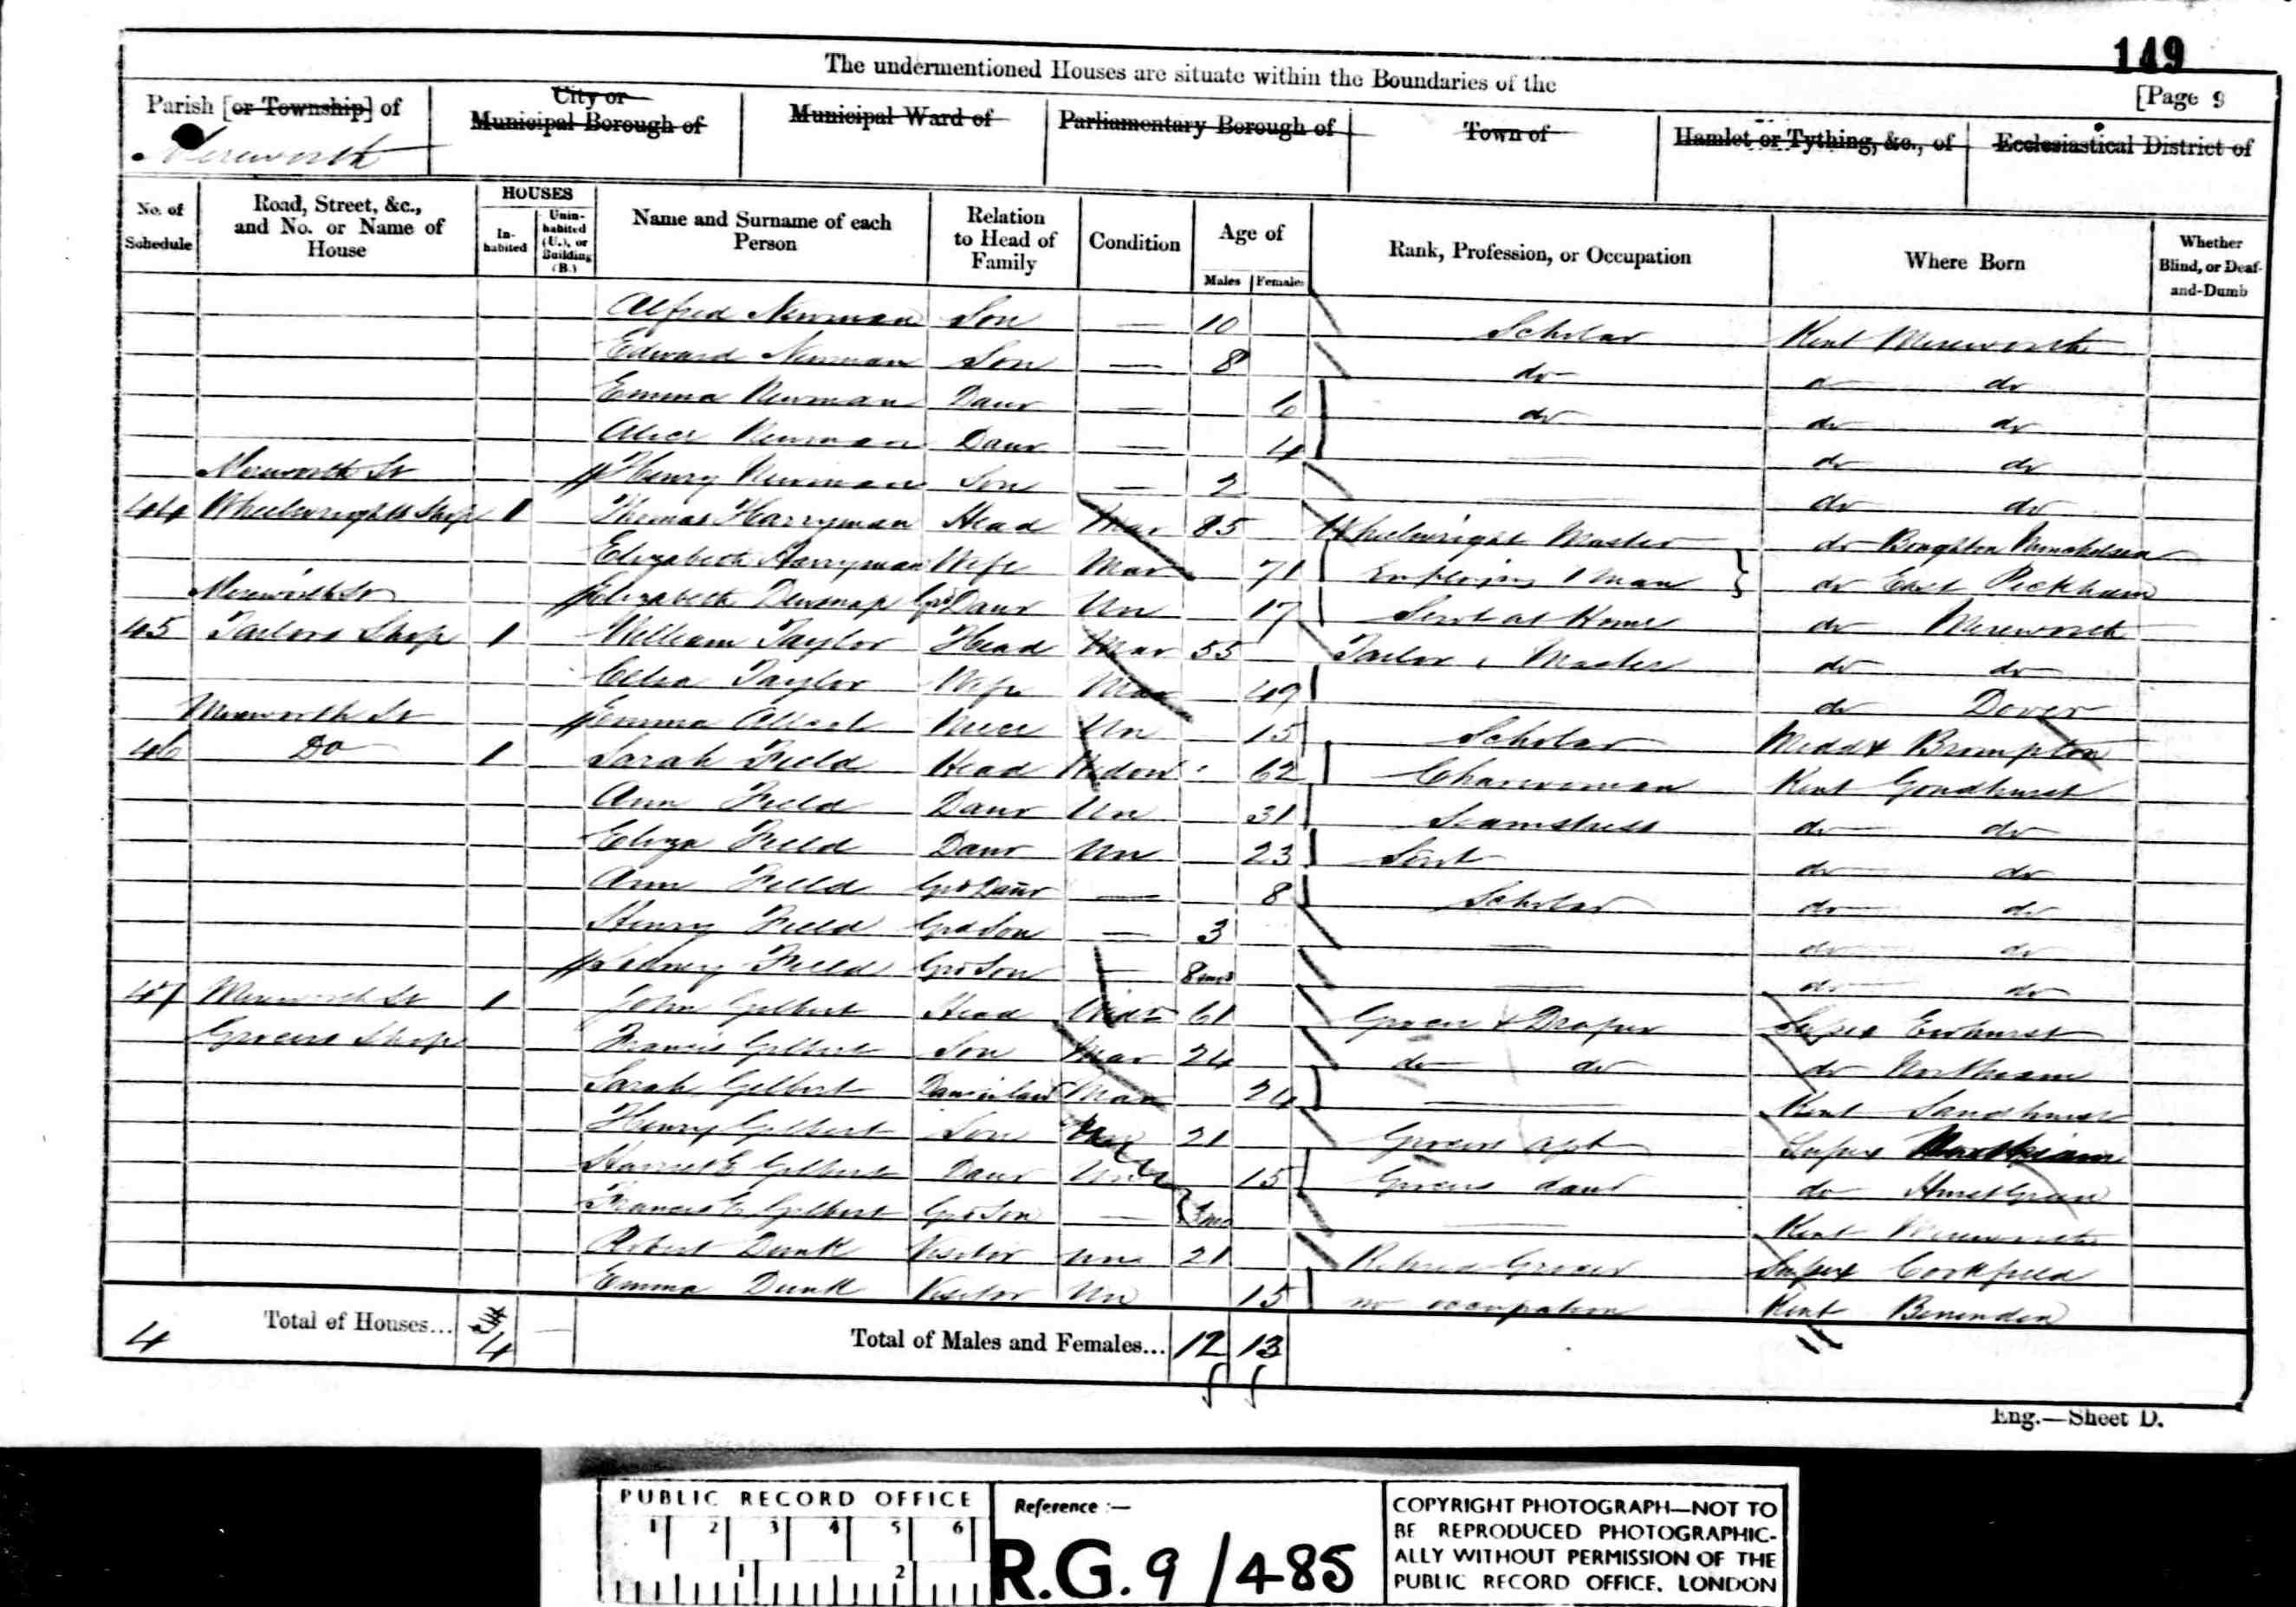 149
The undermentioned Houses are situate within the Boundaries of the
[Page 9
Parish [or Township] of
City or Municipal Borough of
Municipal Ward of
Parliamentary Borough of
Town of
Hamlet or Tything, &c., of
Ecclesiastical District of
Mereworth
No. of Schedule
Road, Street, &c., and No. or Name of House
HOUSES
In-habited
Unin-habited (U.), or Building (B.)
Name and Surname of each Person
Relation to Head of Family
Condition
Age of
Males
Females
Rank, Profession, or Occupation
Where Born
Whether Blind, or Deaf-and-Dumb
Alfred Newman Son — 10 Scholar Kent Mereworth
Edward Newman Son — 8 do do do
Emma Newman Daur — 6 do do do
Alice Newman Daur — 4 — do do
Mereworth St Henry Newman Son — 2 — do do
44 Wheelwrights Shop 1 Thomas Harryman Head Mar 85 Wheelwright Master do Boughton
Elizabeth Harryman Wife Mar 71 Employing 1 Man do East Peckham
Mereworth St Elizabeth Gd Daur Un 17 Servt at Home do Mereworth
45 Tailors Shop 1 William Taylor Head Mar 55 Tailor, Master do do
Celia Taylor Wife Mar 49 — do Dover
Mereworth St Emma Niece Un 15 Scholar Middx Brompton
46 Do 1 Sarah Field Head Widow 62 Charwoman Kent Goudhurst
Ann Field Daur Un 31 Seamstress do do
Eliza Field Daur Un 23 Servt do do
Ann Field Grd Daur — 8 Scholar do do
Henry Field Grd Son — 3 — do do
Sidney Field Grd Son — 8 mos — do do
47 Mereworth St 1 John Gilbert Head Widr 61 Grocer & Draper Sussex Ewhurst
Grocers Shop Francis Gilbert Son Mar 24 do do do Northiam
Sarah Gilbert Daur in law Mar 24 — Kent Sandhurst
Henry Gilbert Son 21 Grocers apt Sussex Northiam
Harriet E Gilbert Daur Un 15 Grocers daur do Hurst Green
Francis E Gilbert Grd Son — 3 mo — Kent Mereworth
Robert Dunk Visitor Un 21 Grocer Sussex
Emma Dunk Visitor Un 15 no occupation Kent Benenden
4 Total of Houses... 4 — Total of Males and Females... 12 13
Eng.—Sheet D.
PUBLIC RECORD OFFICE
1 2 3 4 5 6
1 2
Reference :—
R.G. 9/485
COPYRIGHT PHOTOGRAPH—NOT TO
BE REPRODUCED PHOTOGRAPHIC-
ALLY WITHOUT PERMISSION OF THE
PUBLIC RECORD OFFICE, LONDON